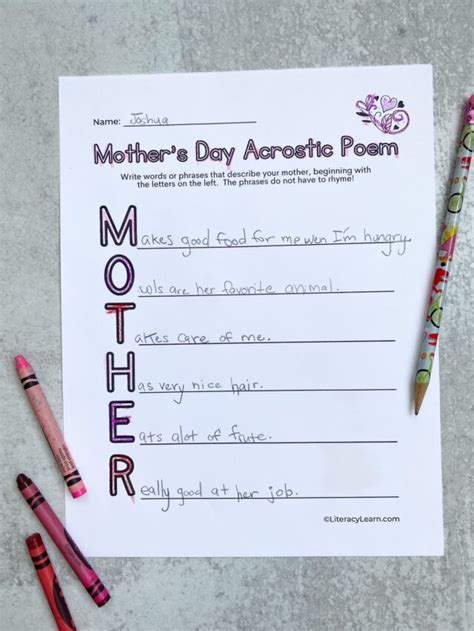 Name: Joshua
Mother's Day Acrostic Poem
Write words or phrases that describe your mother, beginning with
the letters on the left. The phrases do not have to rhyme!
Makes good food for me wen I'm hungry.
Owls are her favorite animal.
Takes care of me.
Has very nice hair.
Eats alot of frute.
Really good at her job.
©LiteracyLearn.com